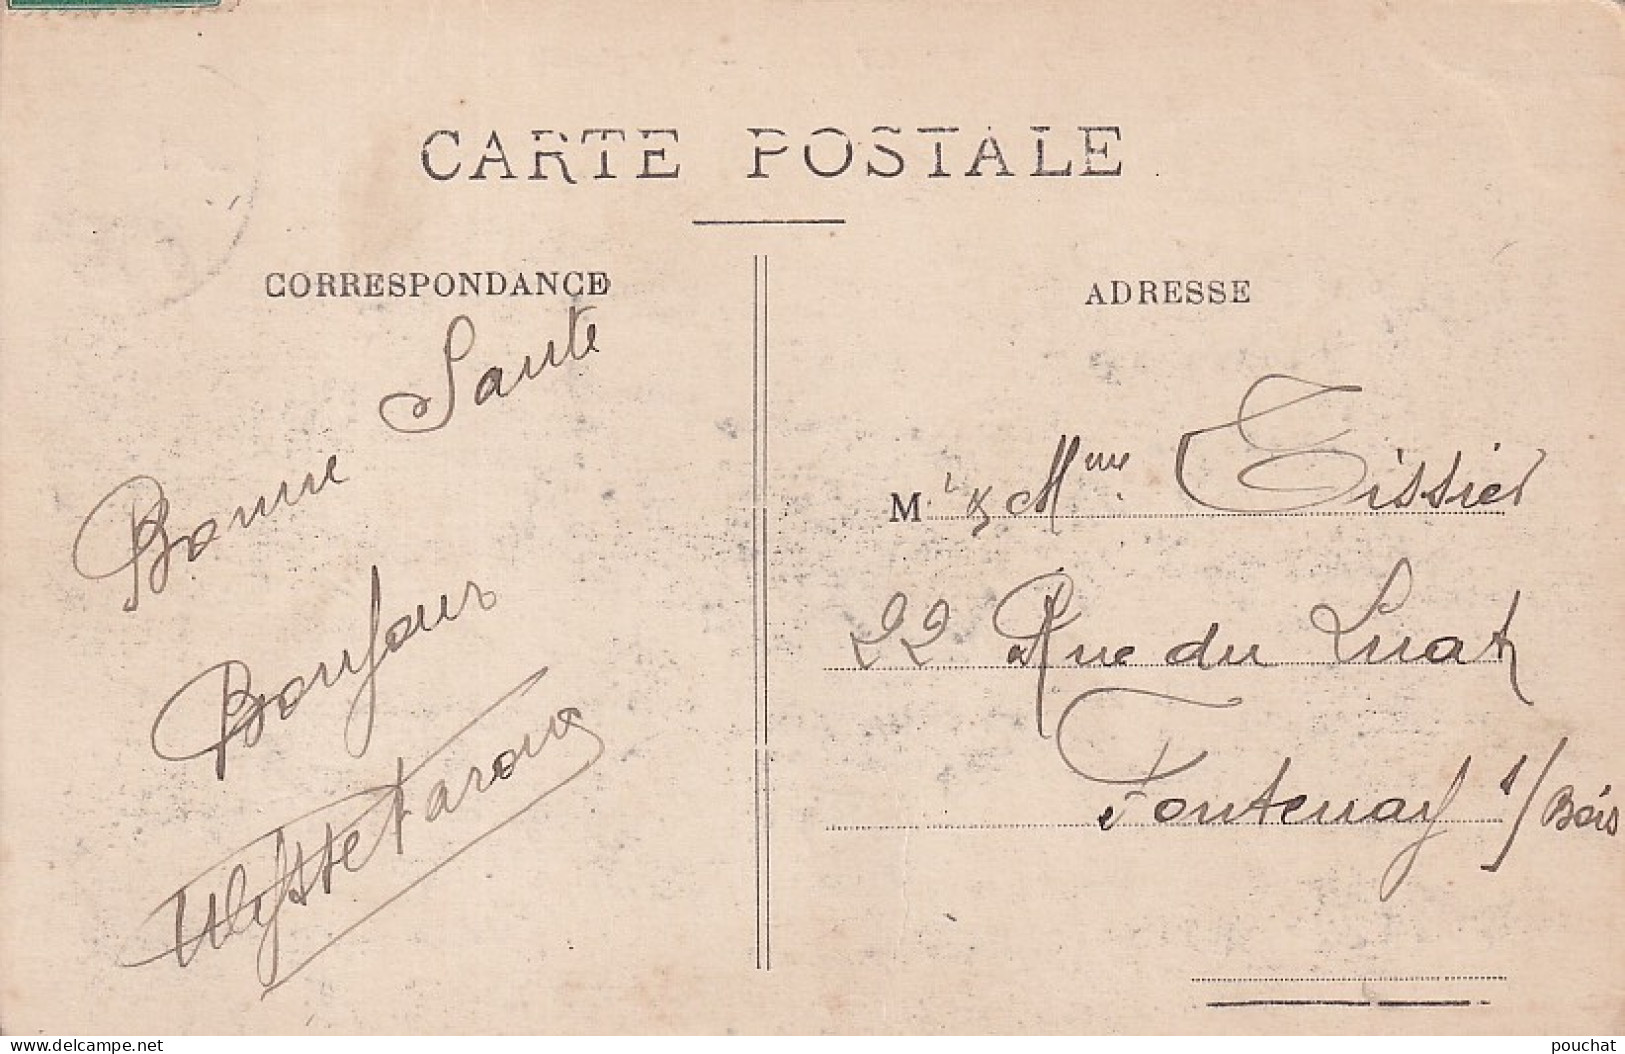 CARTE POSTALE
CORRESPONDANCE
Bonne Santé
Bonjour
Ulysse
ADRESSE
M. & Mme Tissier
22 Rue du Luat
Fontenay s/Bois
www.delcampe.net
pouchat